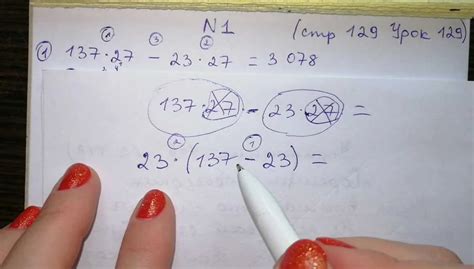 N1 (стр 129 Урок 129)
① 137 · 27 - 23 · 27 = 3 078
137 · 27 - 23 · 27 =
23 · (137 - 23) =